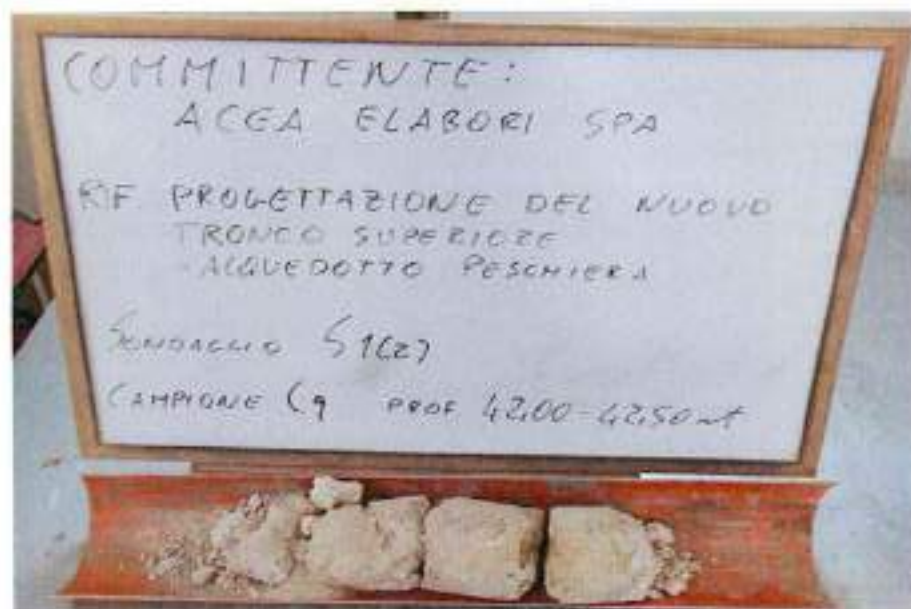 COMMITTENTE:
ACEA ELABORI SPA
RIF PROGETTAZIONE DEL NUOVO
TRONCO SUPERIORE
- ACQUEDOTTO PESCHIERA
SONDAGGIO S1(2)
CAMPIONE C9 PROF 42,00-42,50 mt